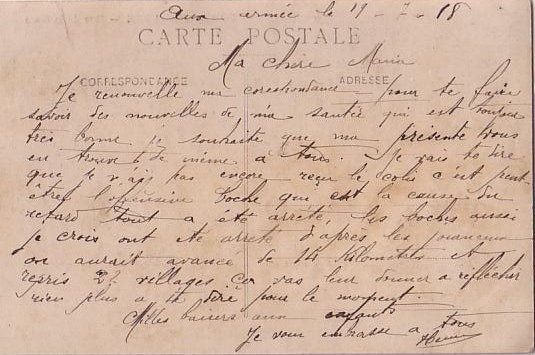 Aux armée le 19-7-18
CARTE POSTALE
Ma chère Maria
CORRESPONDANCE ADRESSE
Je renouvelle ma corespondance pour te faire
savoir des nouvelles de ma santée qui est toujour
très bonne je souhaite que ma présente vous
en trouve de même a tous. Je vais te dire
que je n'ais pas encore reçu le colis c'est peut
être l'offensive boche qui est la cause du
retard tout a été arrêté, les boches aussi
je crois ont été arreté d'après les journeaux
on aurait avancé de 14 kilomètres et
repris 22 villages Ça vas leur donner a réfléchir
rien plus a te dire pour le moment.
Milles baisers aux enfants
Je vous embrasse a tous